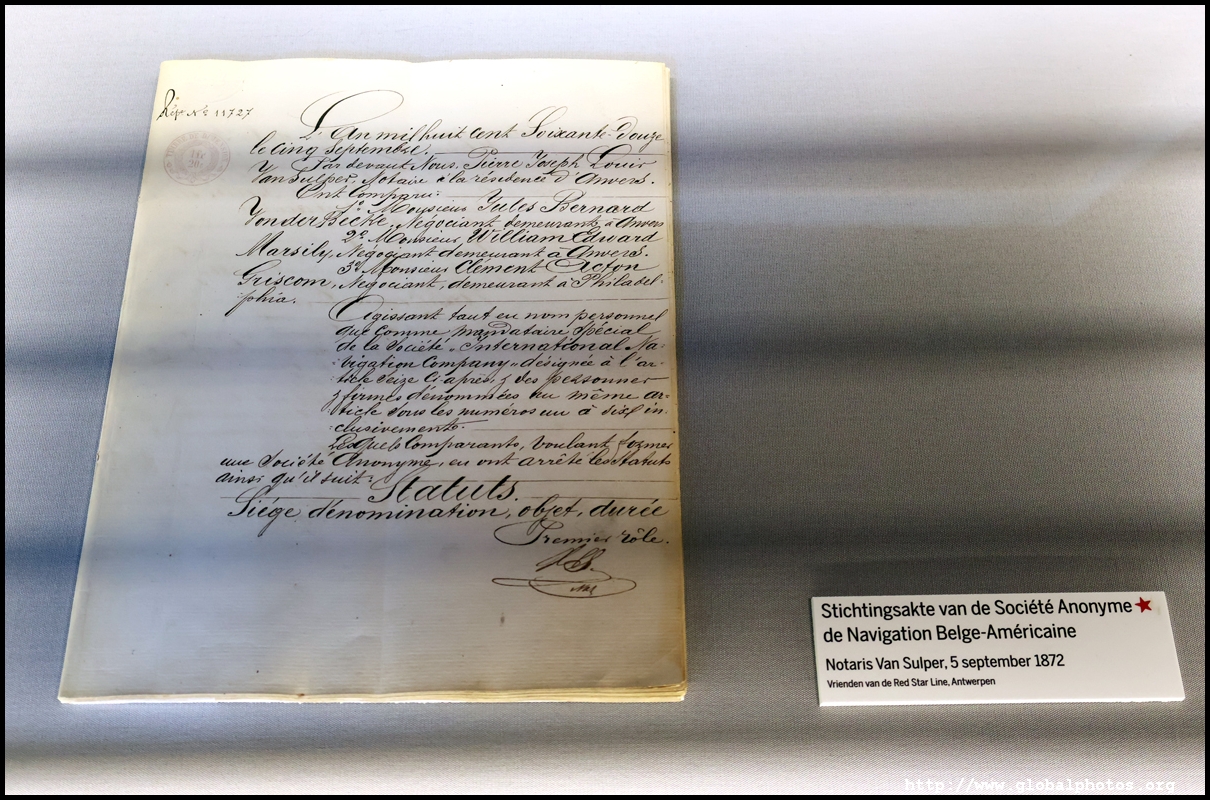 Rép. Nº 11727
L'An mil huit cent Soixante-Douze
le cinq Septembre.
Par devant Nous, Pierre Joseph Louis
Van Sulper, Notaire à la résidence d'Anvers.
Ont Comparu:
1º Monsieur Jules Bernard
Von der Becke, Négociant demeurant à Anvers
2º Monsieur William Edward
Marsily, Négociant demeurant à Anvers.
3º Monsieur Clément Acton
Griscom, Négociant, demeurant à Philadel-
-phia.
Agissant tant en nom personnel
que comme mandataire Spécial
de la Société "International Na-
-vigation Company" désignée à l'ar-
-ticle seize ci-après, & des personnes
& firmes dénommées au même ar-
-ticle sous les numéros un à dix in-
-clusivement.
Lesquels Comparants, voulant former
une Société Anonyme, en ont arrêté les Statuts
ainsi qu'il suit:
Statuts.
Siége dénomination, objet, durée
Premier rôle.
Stichtingsakte van de Société Anonyme
de Navigation Belge-Américaine
Notaris Van Sulper, 5 september 1872
Vrienden van de Red Star Line, Antwerpen
http://www.globalphotos.org